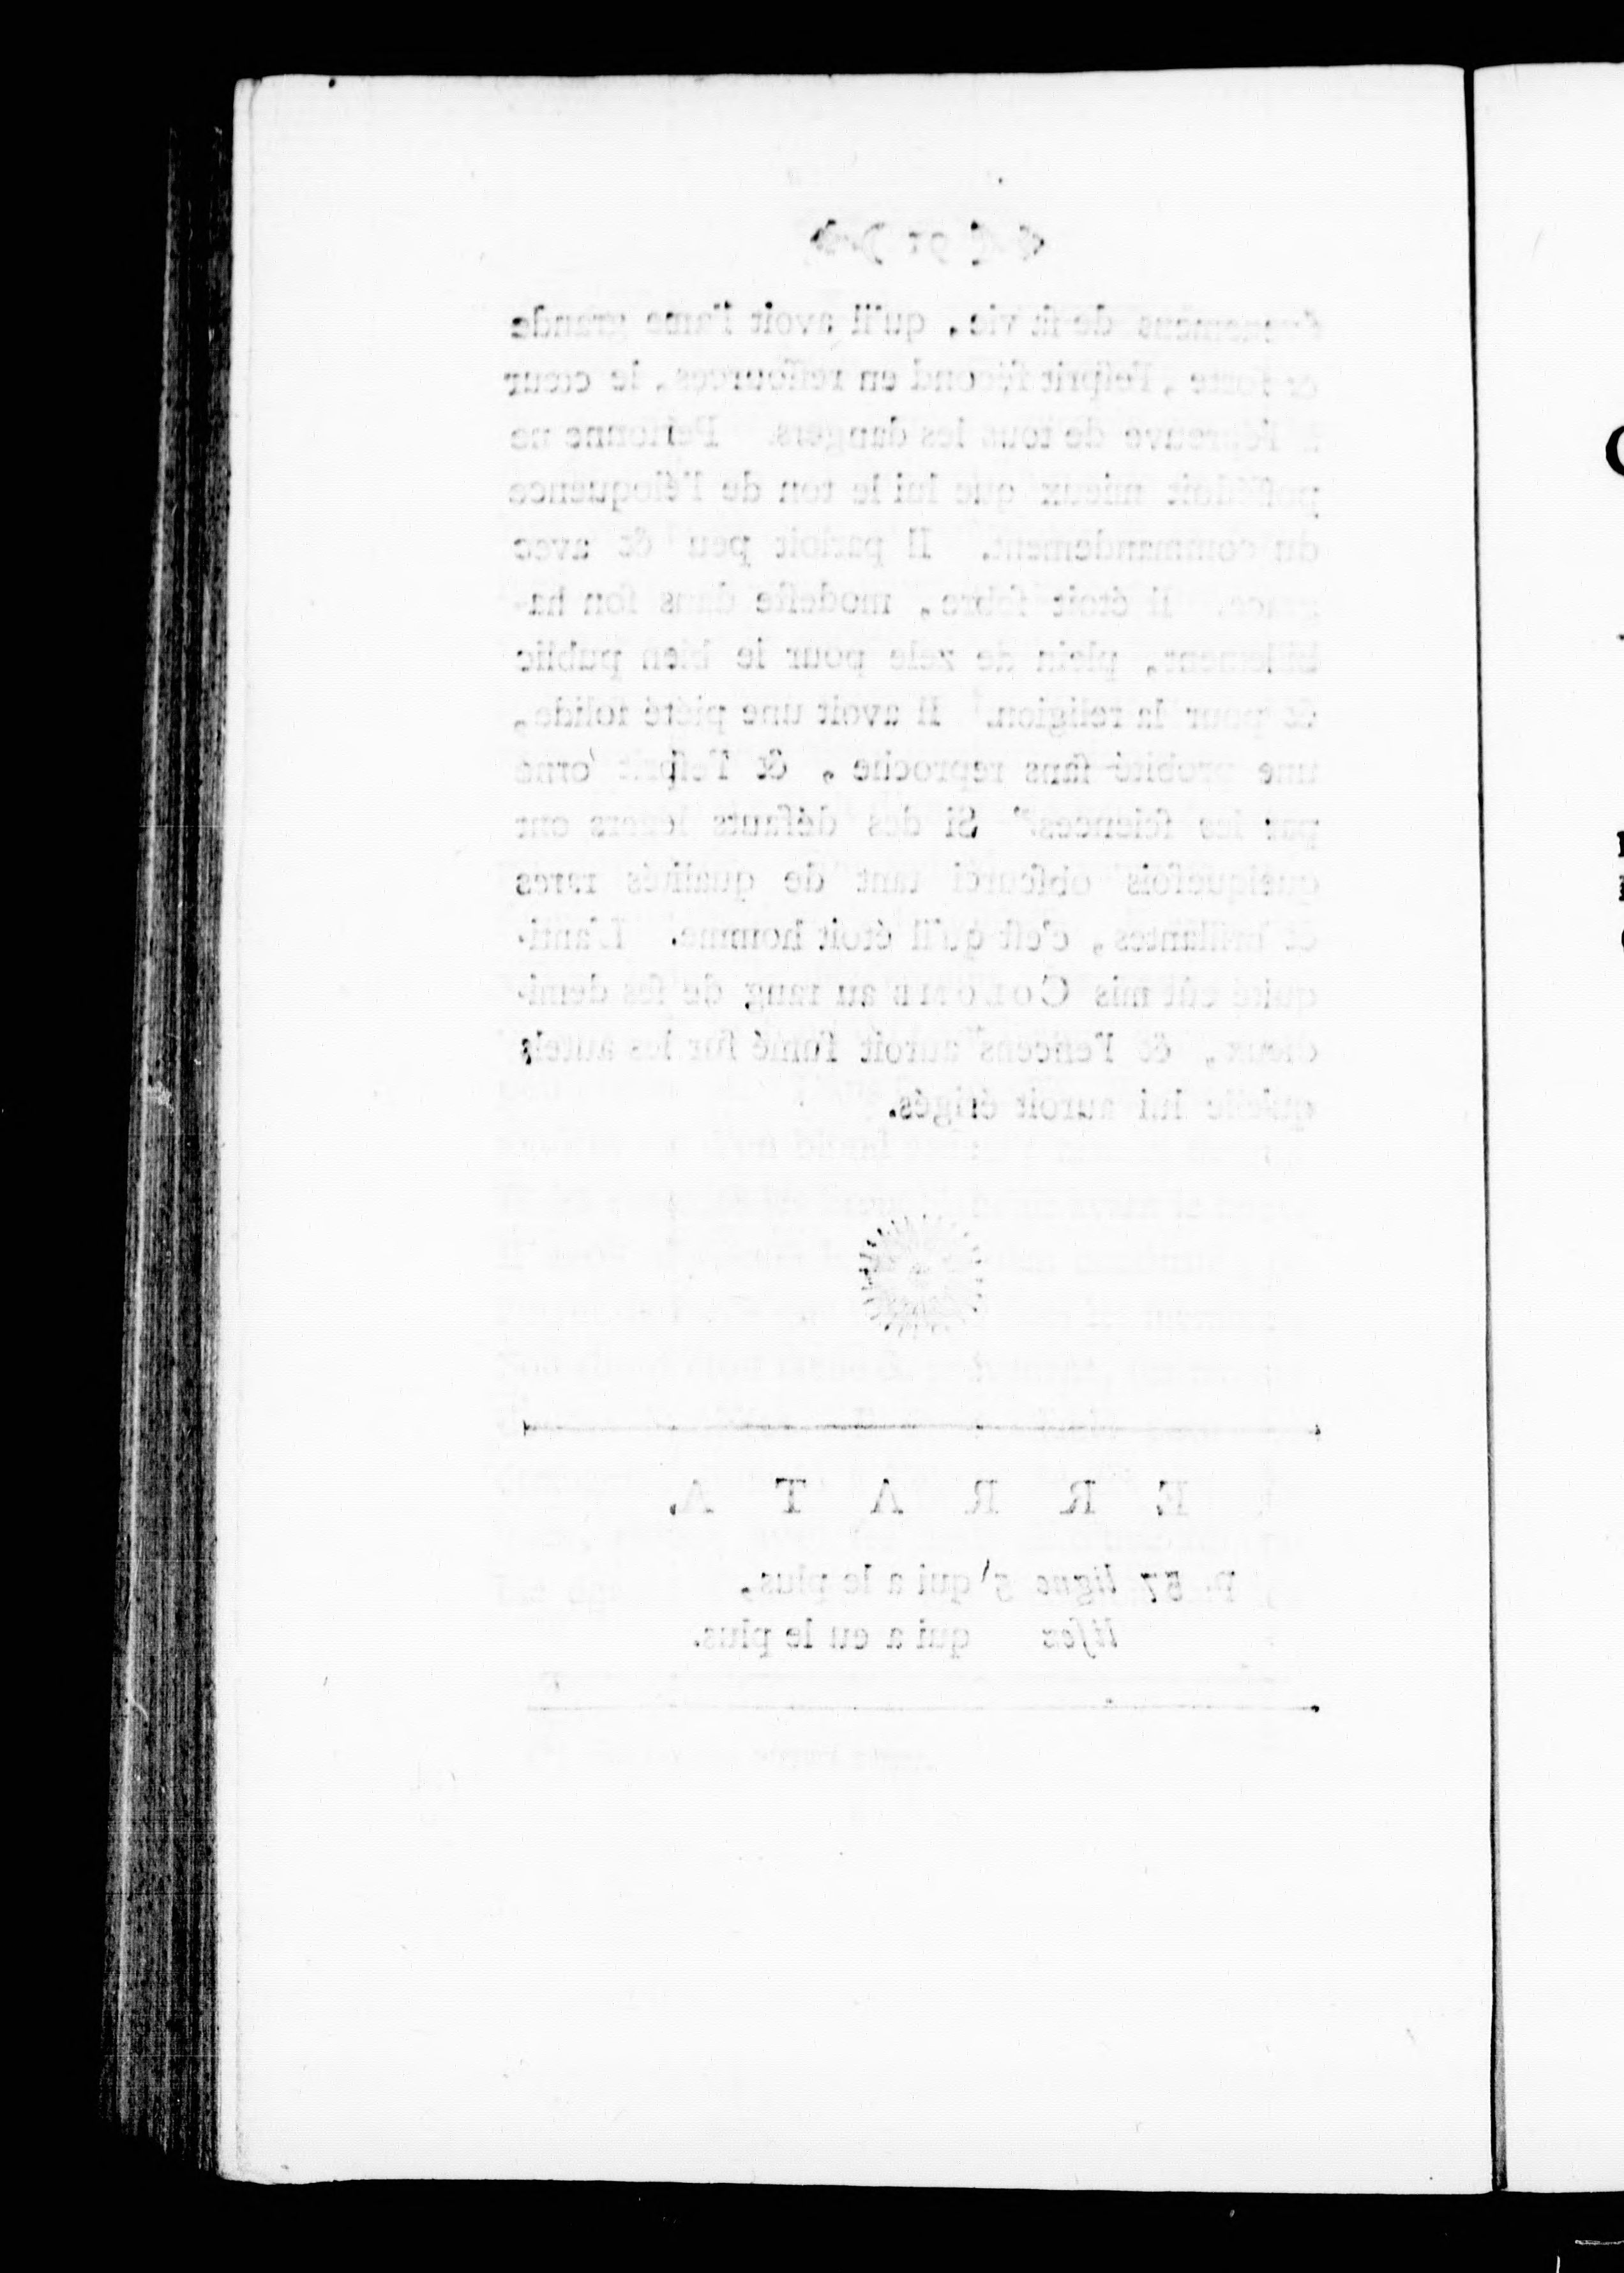 ( 91 )
de sa vie, qu'il avoit l'ame grande
& forte, l'eſprit fécond en reſſources, le cœur
l'épreuve de tous les dangers. Perſonne ne
poſſédoit mieux que lui le ton de l'éloquence
du commandement. Il parloit peu & avec
grace. Il étoit ſobre, modeſte dans ſon ha-
billement, plein de zele pour le bien public
& pour la religion. Il avoit une piété ſolide,
une probité ſans reproche, & l'eſprit orné
par les ſciences. Si des défauts légers ont
quelquefois obſcurci tant de qualités rares
et brillantes, c'eſt qu'il étoit homme. L'anti-
quité eût mis COLOMB au rang de ſes demi-
dieux, & l'encens auroit fumé ſur les autels
qu'elle lui auroit érigés.
E R R A T A.
P. 57 ligne 5 qui a le plus,
liſez qui a eu le plus.